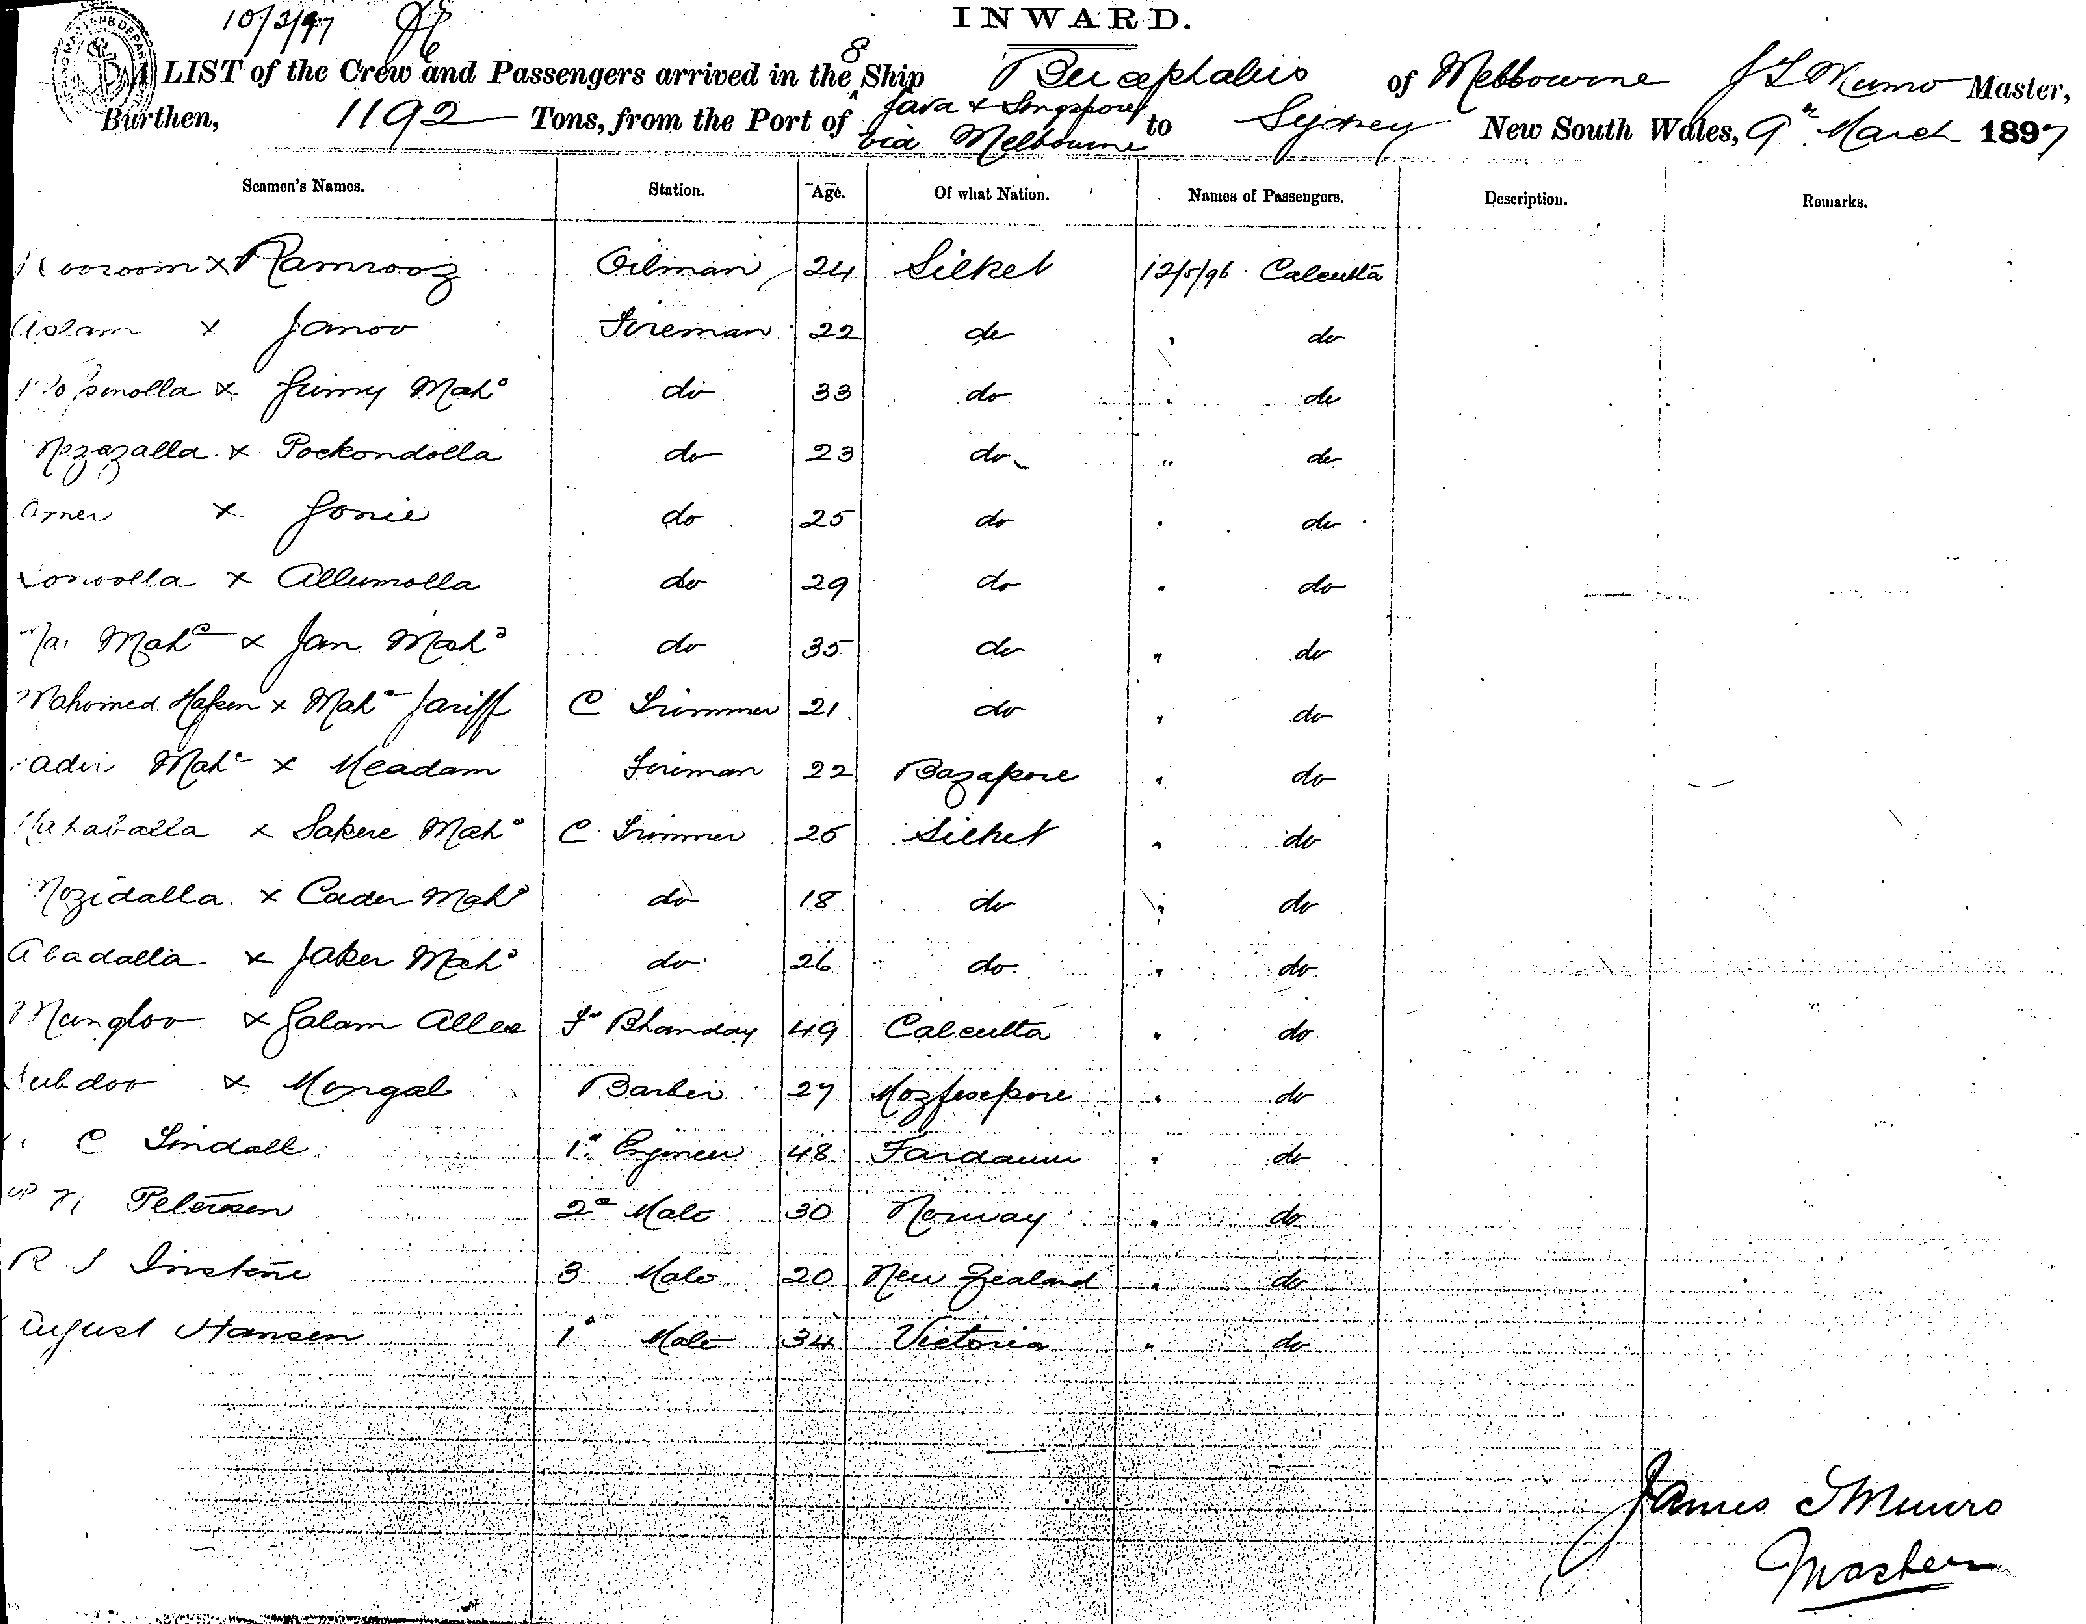 10/3/97
INWARD.
A LIST of the Crew and Passengers arrived in the S Ship Bucephalus of Melbourne J S Munro Master,
Burthen, 1192 Tons, from the Port of Java & Singapore via Melbourne to Sydney New South Wales, 9th March 1897
Seamen's Names. Station. Age. Of what Nation. Names of Passengers. Description. Remarks.
x Ramrooz Oilman 24 Silket 12/5/96 Calcutta
Aslam x Janoo Fireman 22 do " do
x Jumy Maho do 33 do " do
x Pockondolla do 23 do " do
Amer x Jonie do 25 do " do
x Allumolla do 29 do " do
Maho x Jan Maho do 35 do " do
Mahomed x Maho Jariff C Trimmer 21 do " do
Maho x Meadam Fireman 22 Bazapore " do
x Sakere Maho C Trimmer 25 Silket " do
Mozidalla x Cader Maho do 18 do " do
Abadalla x Jaker Maho do 26 do " do
Mungloo x Golam Allee Fn Bhanday 49 Calcutta " do
x Mongal Barber 27 Mozfesepore " do
C Lindall 1st Engineer 48 " do
Petersen 2nd Mate 30 Norway " do
R J 3 Mate 20 New Zealand " do
August Hansen 1st Mate 34 Victoria " do
James S Munro
Master